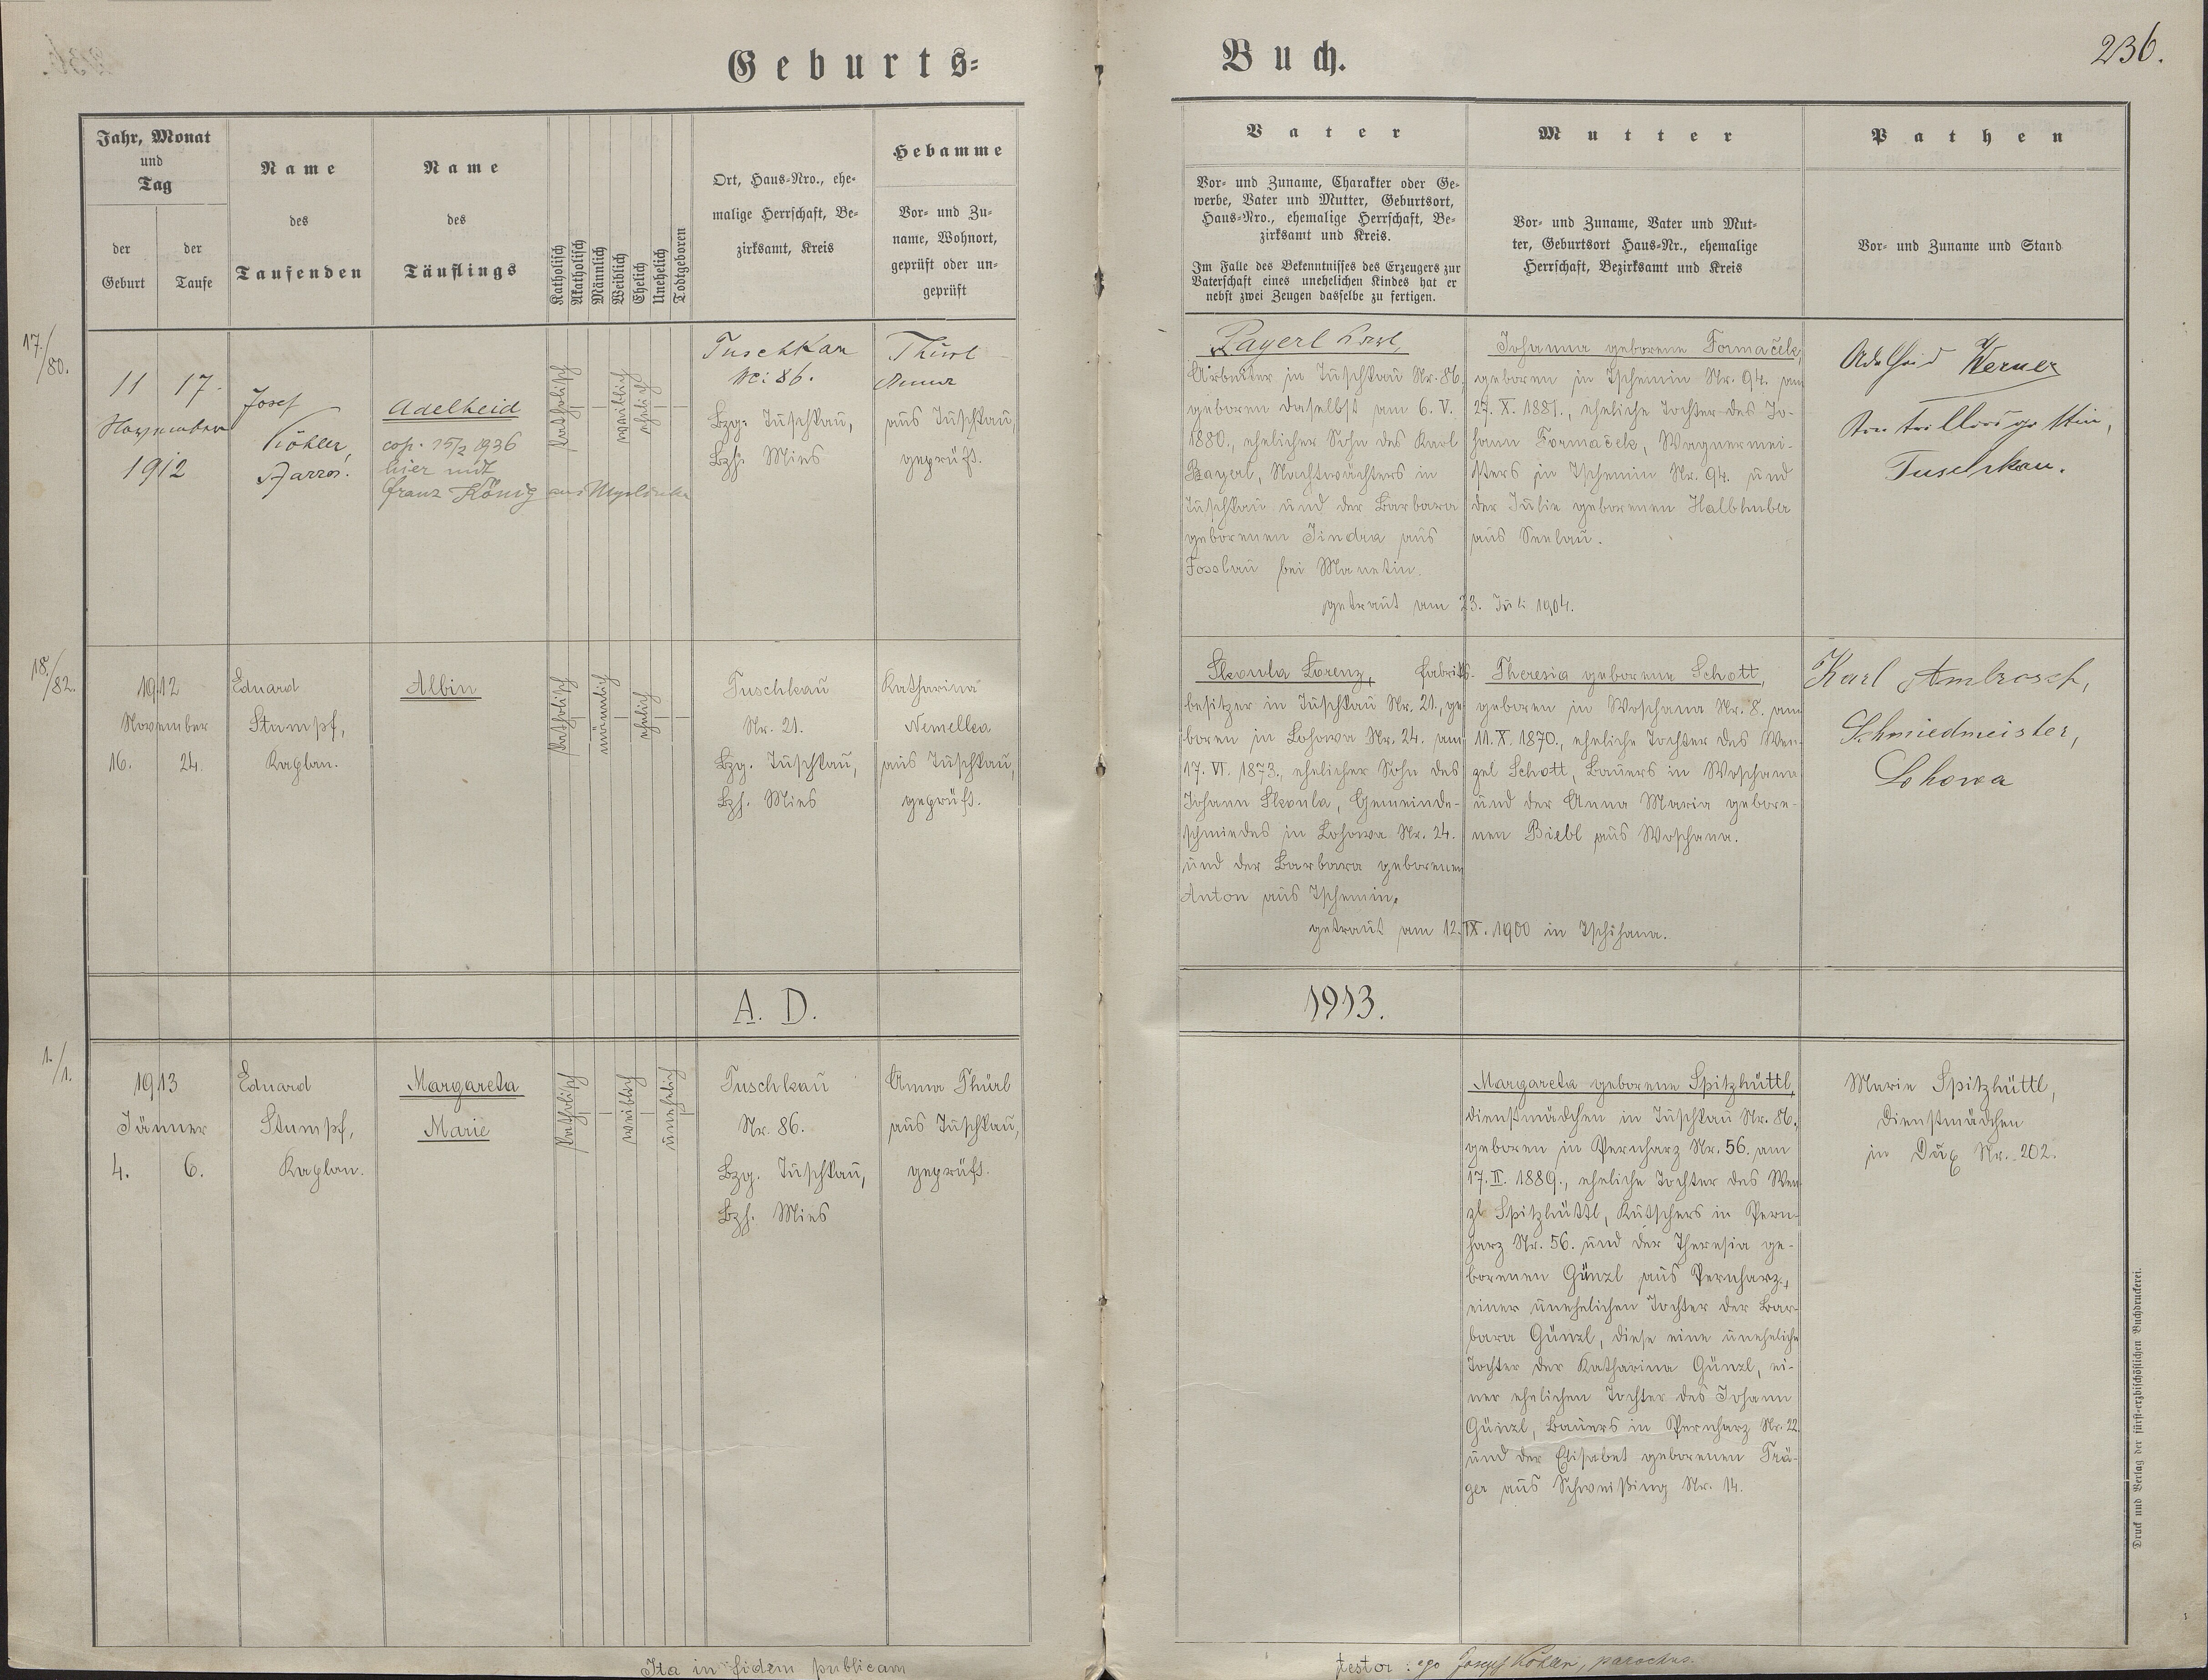 Geburts-
Buch.
236.
Jahr, Monat
und
Tag
der
Geburt
der
Taufe
Name
des
Taufenden
Name
des
Täuflings
Katholisch
Akatholisch
Männlich
Weiblich
Ehelich
Unehelich
Todtgeboren
Ort, Haus-Nro., ehe-
malige Herrschaft, Be-
zirksamt, Kreis
Hebamme
Vor- und Zu-
name, Wohnort,
geprüft oder un-
geprüft
Vater
Vor- und Zuname, Charakter oder Ge-
werbe, Vater und Mutter, Geburtsort,
Haus-Nro., ehemalige Herrschaft, Be-
zirksamt und Kreis.
Im Falle des Bekenntnisses des Erzeugers zur
Vaterschaft eines unehelichen Kindes hat er
nebst zwei Zeugen dasselbe zu fertigen.
Mutter
Vor- und Zuname, Vater und Mut-
ter, Geburtsort Haus-Nr., ehemalige
Herrschaft, Bezirksamt und Kreis
Pathen
Vor- und Zuname und Stand
17./80.
11 17.
November
1912
Josef
Köhler,
Pfarrer.
Adelheid
cop. 15/2 1936
hier mit
Franz König aus
katholisch
weiblich
ehelich
Tuschkau
Nr: 86.
Bzg. Tuschkau,
Bzh. Mies
Thürl
Anna
aus Tuschkau,
geprüft.
Bayerl Karl,
Arbeiter in Tuschkau Nr. 86,
geboren daselbst am 6. V.
1880., ehelicher Sohn des Karl
Bayerl, Nachtwächters in
Tuschkau und der Barbara
geborenen Jindra aus
Fosslau bei Manetin.
getraut am 23. Juli 1904.
Johanna geborene Formaček,
geboren in Tschemin Nr. 94. am
27. X. 1881., eheliche Tochter des Jo-
hann Formaček, Wagnermei-
sters in Tschemin Nr. 94. und
der Julie geborenen Halbhuber
aus Seelau.
Adelheid Werner
Tuschkau.
18./82.
1912
November
16. 24.
Eduard
Stumpf,
Kaplan.
Albin
katholisch
männlich
ehelich
Tuschkau
Nr. 21.
Bzg. Tuschkau,
Bzh. Mies
Katharina
Nemelka
aus Tuschkau,
geprüft.
Skoula Lorenz, Fabriks-
besitzer in Tuschkau Nr. 21., ge-
boren in Lohowa Nr. 24. am
17. VI. 1873., ehelicher Sohn des
Johann Skoula, Gemeinde-
schmiedes in Lohowa Nr. 24.
und der Barbara geborenen
Anton aus Tschemin.
getraut am 12. IX. 1900 in Tschihana.
Theresia geborene Schott,
geboren in Woschana Nr. 8. am
11. X. 1870., eheliche Tochter des Wen-
zel Schott, Bauers in Woschana
und der Anna Maria gebore-
nen Biebl aus Woschana.
Karl Ambrosch,
Schmiedmeister,
Lohowa
A. D.
1913.
1./1.
1913
Jänner
4. 6.
Eduard
Stumpf,
Kaplan.
Margareta
Marie
katholisch
weiblich
unehelich
Tuschkau
Nr. 86.
Bzg. Tuschkau,
Bzh. Mies
Anna Thürl
aus Tuschkau,
geprüft.
Margareta geborene Spitzhüttl,
Dienstmädchen in Tuschkau Nr. 86.,
geboren in Pernharz Nr. 56. am
17. II. 1889., eheliche Tochter des Wen-
zl Spitzhüttl, Kutschers in Pern-
harz Nr. 56. und der Theresia ge-
borenen Günzl aus Pernharz,
einer unehelichen Tochter der Bar-
bara Günzl, diese eine uneheliche
Tochter der Katharina Günzl, ei-
ner ehelichen Tochter des Johann
Günzl, Bauers in Pernharz Nr. 22.
und der Elisabet geborenen Trä-
ger aus Schweißing Nr. 14.
Marie Spitzhüttl,
Dienstmädchen
in Dux Nr. 202.
Druck und Verlag der fürst-erzbischöflichen Buchdruckerei.
Ita in fidem publicam
testor: ego Josef Köhler, parochus.